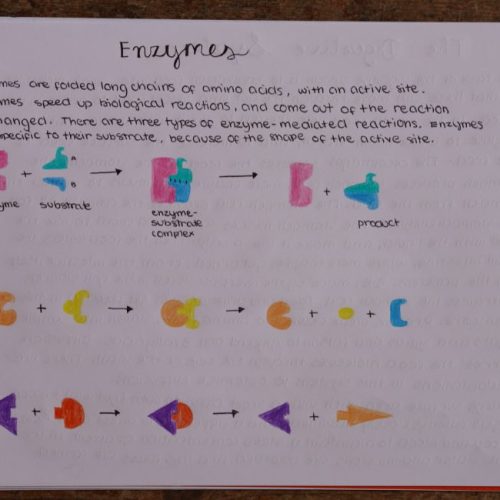 Enzymes
mes are folded long chains of amino acids, with an active site.
mes speed up biological reactions, and come out of the reaction
hanged. There are three types of enzyme-mediated reactions. Enzymes
specific to their substrate, because of the shape of the active site.
+ A B
yme substrate enzyme-substrate complex + product
+ + +
+ +